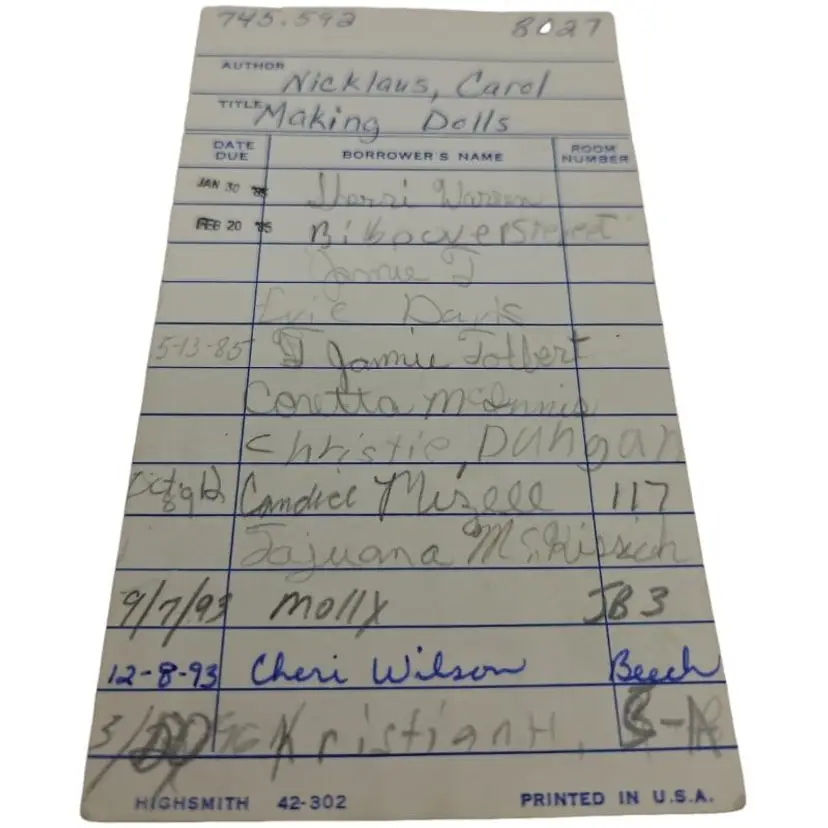 745.592 8027
AUTHOR Nicklaus, Carol
TITLE Making Dolls
DATE DUE BORROWER'S NAME ROOM NUMBER
JAN 30 '85 Sherri Warren
FEB 20 '85
Jamie T
Evie Davis
5-13-85 Jamie Tolbert
Coretta McInnis
Christie Dungan
Candice Mizell 117
Tajuana McKissick
9/7/93 Molly JB3
12-8-93 Cheri Wilson Beech
3/20 Kristian H.
HIGHSMITH 42-302 PRINTED IN U.S.A.